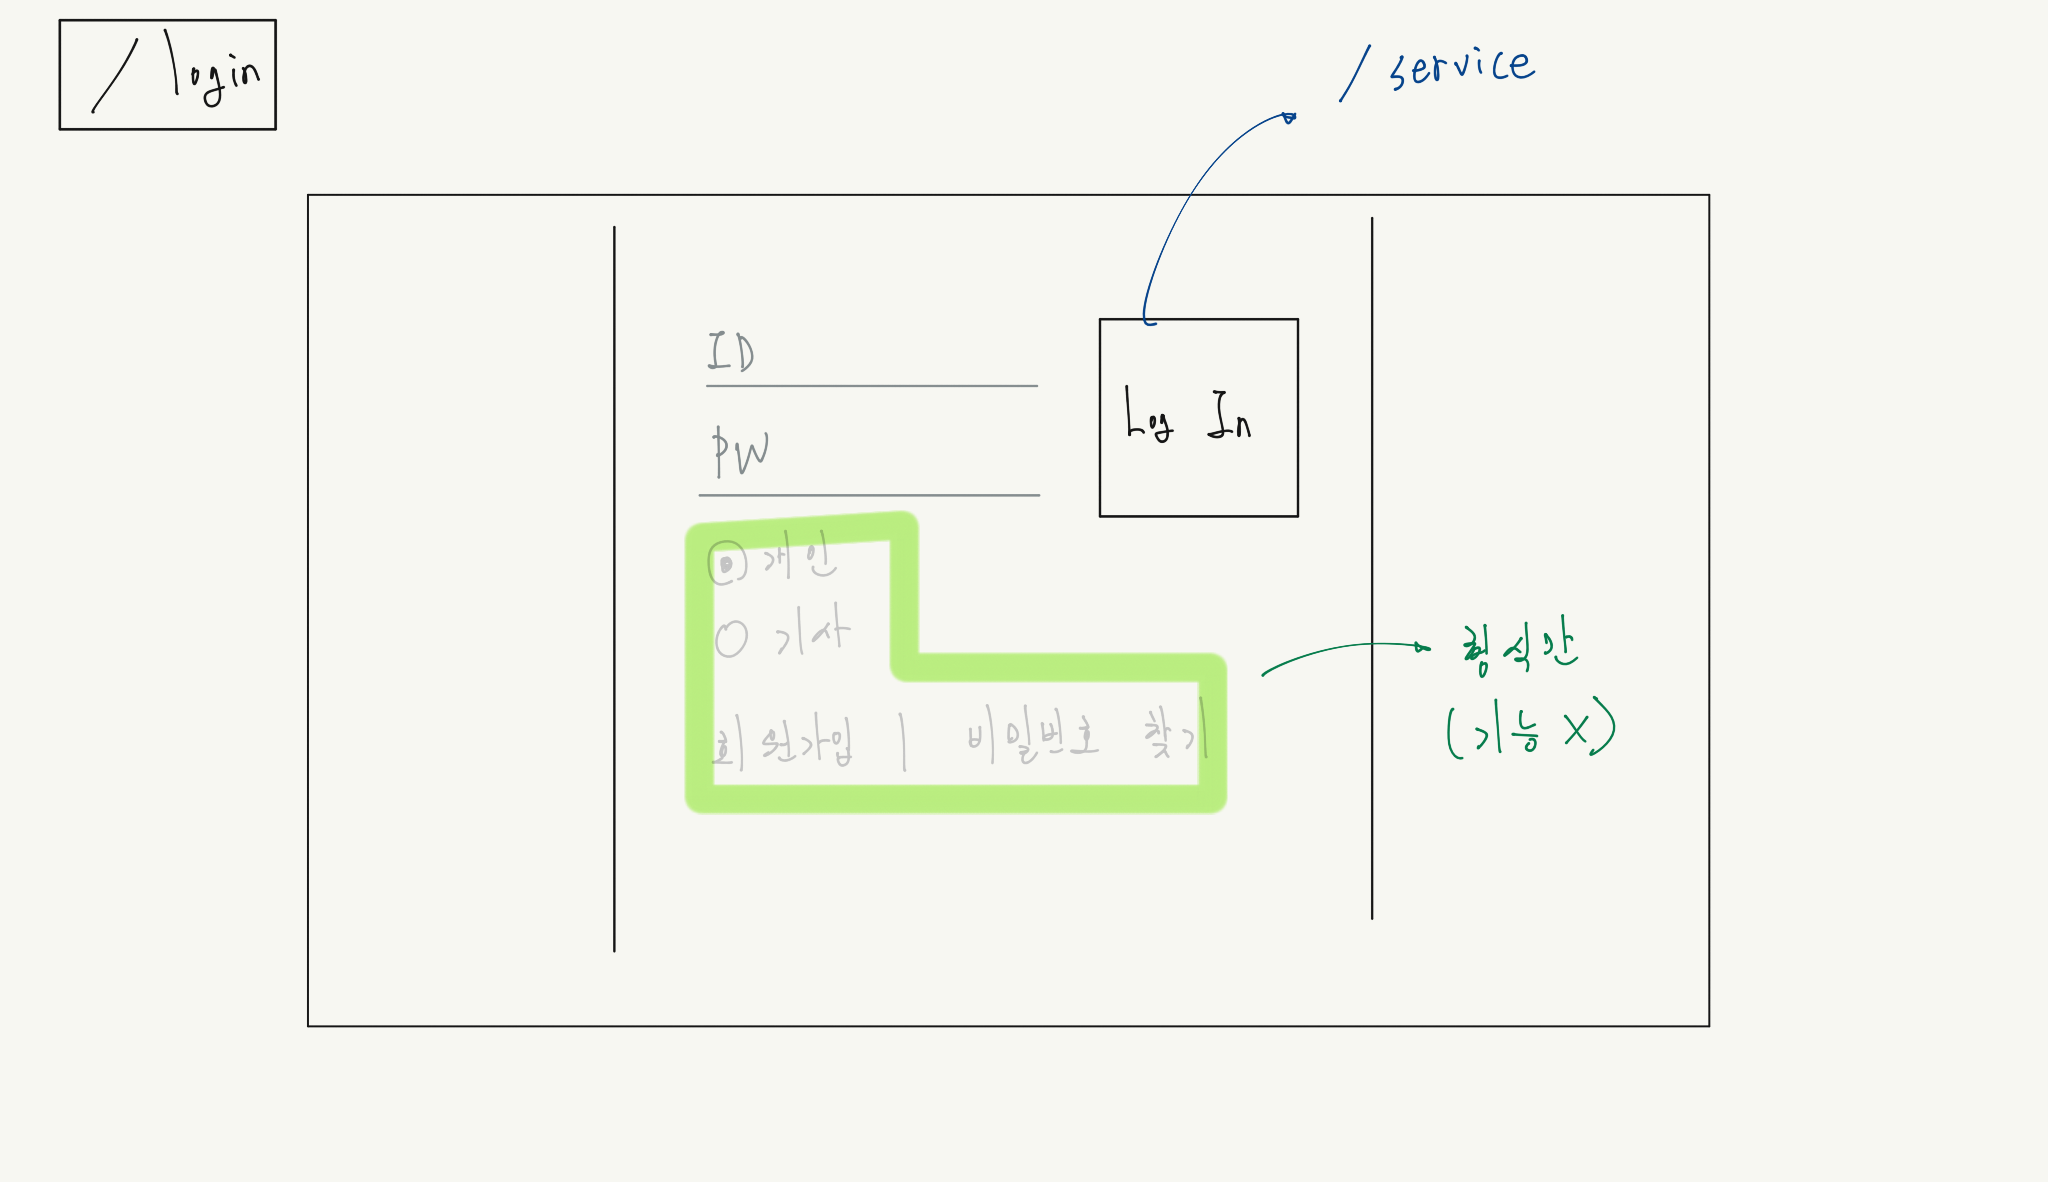 /login
/service
ID
PW
Log In
개인
기사
회원가입 | 비밀번호 찾기
형식만
(기능 X)